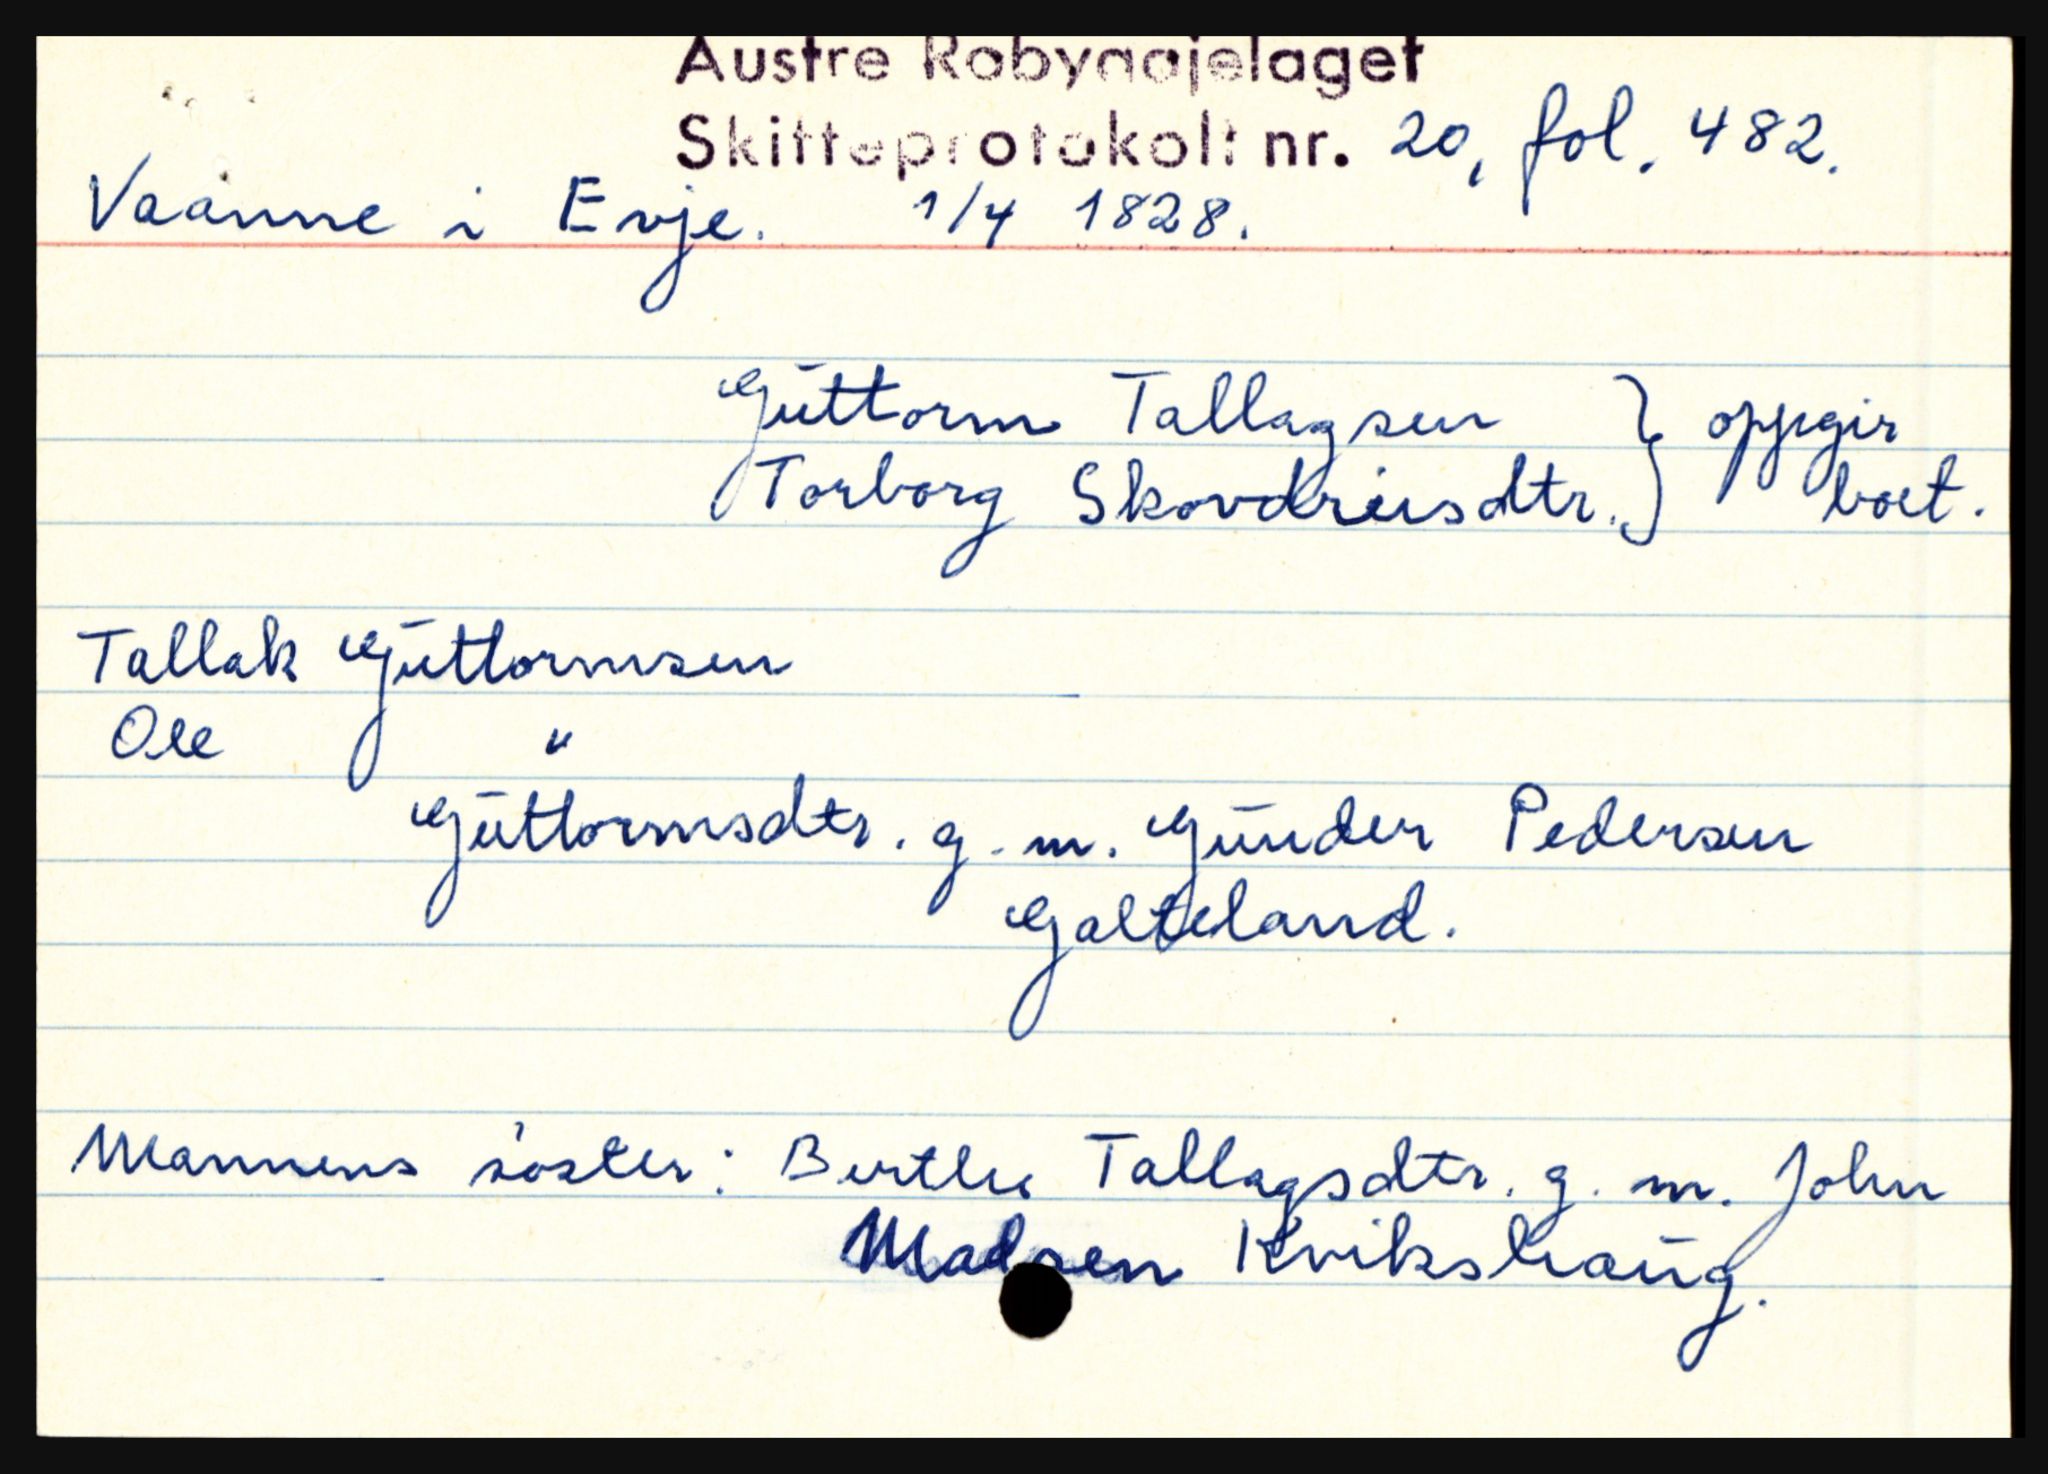 Austre Robyggjelaget
Skifteprotokoll nr. 20, fol. 482.
Vaanne i Evje. 1/4 1828.
Guttorm Tallagsen } oppgir
Torborg Skovdreisdtr. } boet.
Tallak Guttormsen
Ole "
Guttormsdtr. g. m. Gunder Pedersen
Galteland.
Mannens söster: Berthe Tallagsdtr. g. m. John
Madsen Kvikshaug.